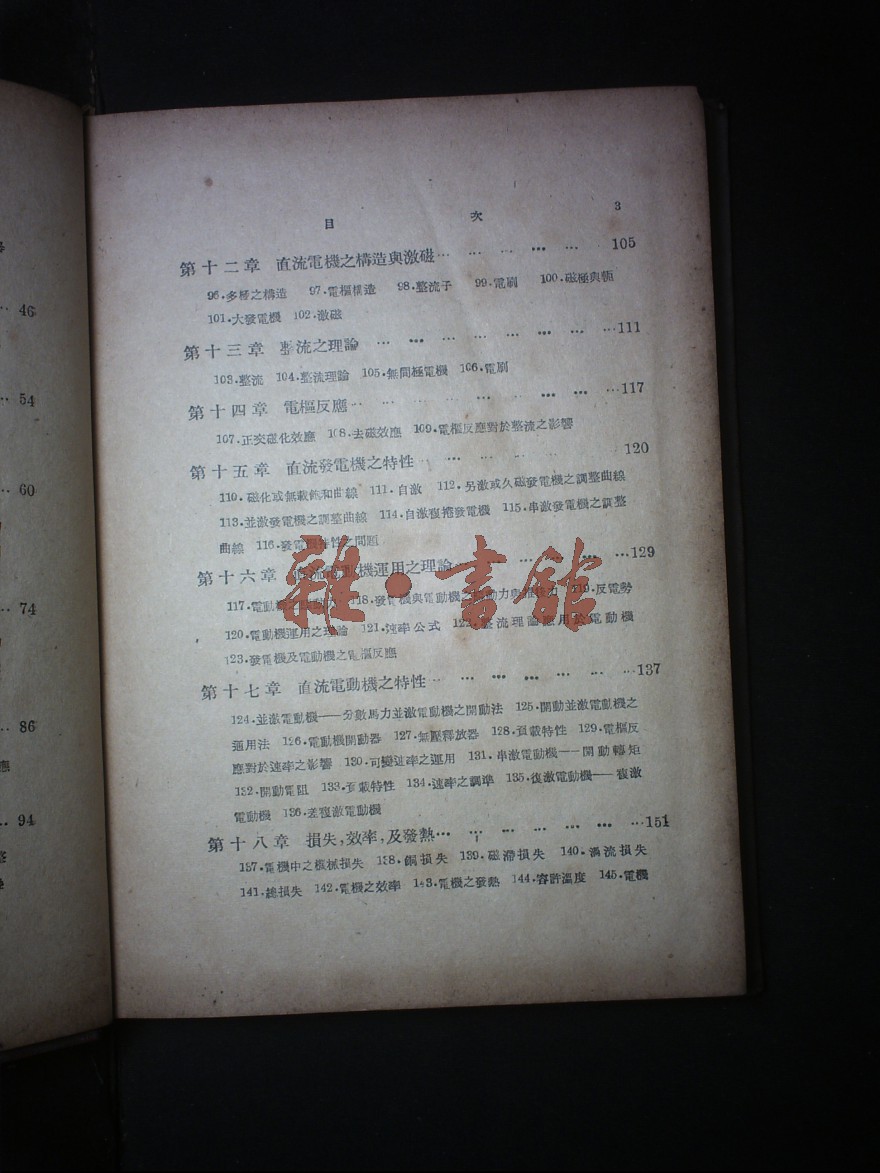 46
54
60
74
86
94
目 次 3
第十二章 直流電機之構造與激磁 … … … … … 105
96.多極之構造 97.電樞構造 98.整流子 99.電刷 100.磁極與軛
101.大發電機 102.激磁
第十三章 整流之理論 … … … … … … … … 111
103.整流 104.整流理論 105.無間極電機 106.電刷
第十四章 電樞反應 … … … … … … … … 117
107.正交磁化效應 108.去磁效應 109.電樞反應對於整流之影響
第十五章 直流發電機之特性 … … … … … 120
110.磁化或無載飽和曲線 111.自激 112.另激或久磁發電機之調整曲線
113.並激發電機之調整曲線 114.自激複捲發電機 115.串激發電機之調整
曲線 116.發電機特性之問題
第十六章 直流電動機運用之理論 … … … … … 129
117.電動機之 118.發電機與電動機之 力與 力 119.反電勢
120.電動機運用之理論 121.速率公式 122.整流理論應用於電動機
123.發電機及電動機之電樞反應
第十七章 直流電動機之特性 … … … … … … … 137
124.並激電動機——分數馬力並激電動機之開動法 125.開動並激電動機之
通用法 126.電動機開動器 127.無壓釋放器 128.負載特性 129.電樞反
應對於速率之影響 130.可變速率之運用 131.串激電動機——開動轉矩
132.開動電阻 133.負載特性 134.速率之調準 135.復激電動機——複激
電動機 136.差復激電動機
第十八章 損失,效率,及發熱 … … … … … … … 151
137.電機中之機械損失 138.銅損失 139.磁滯損失 140.渦流損失
141.總損失 142.電機之效率 143.電機之發熱 144.容許溫度 145.電機
雜·書館